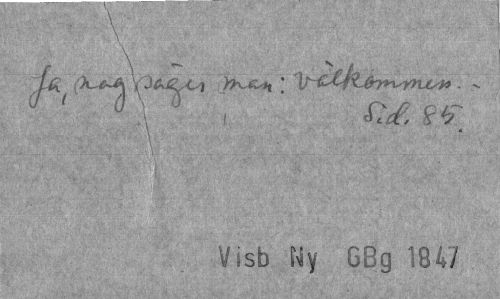 Ja, nog säges man: välkommen. -
Sid. 85.
Visb Ny GBg 1847